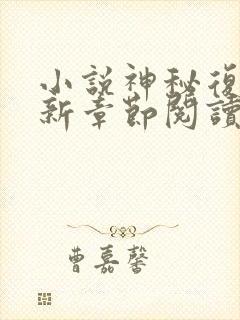 小說神秘復
新章節閱讀
曹嘉馨